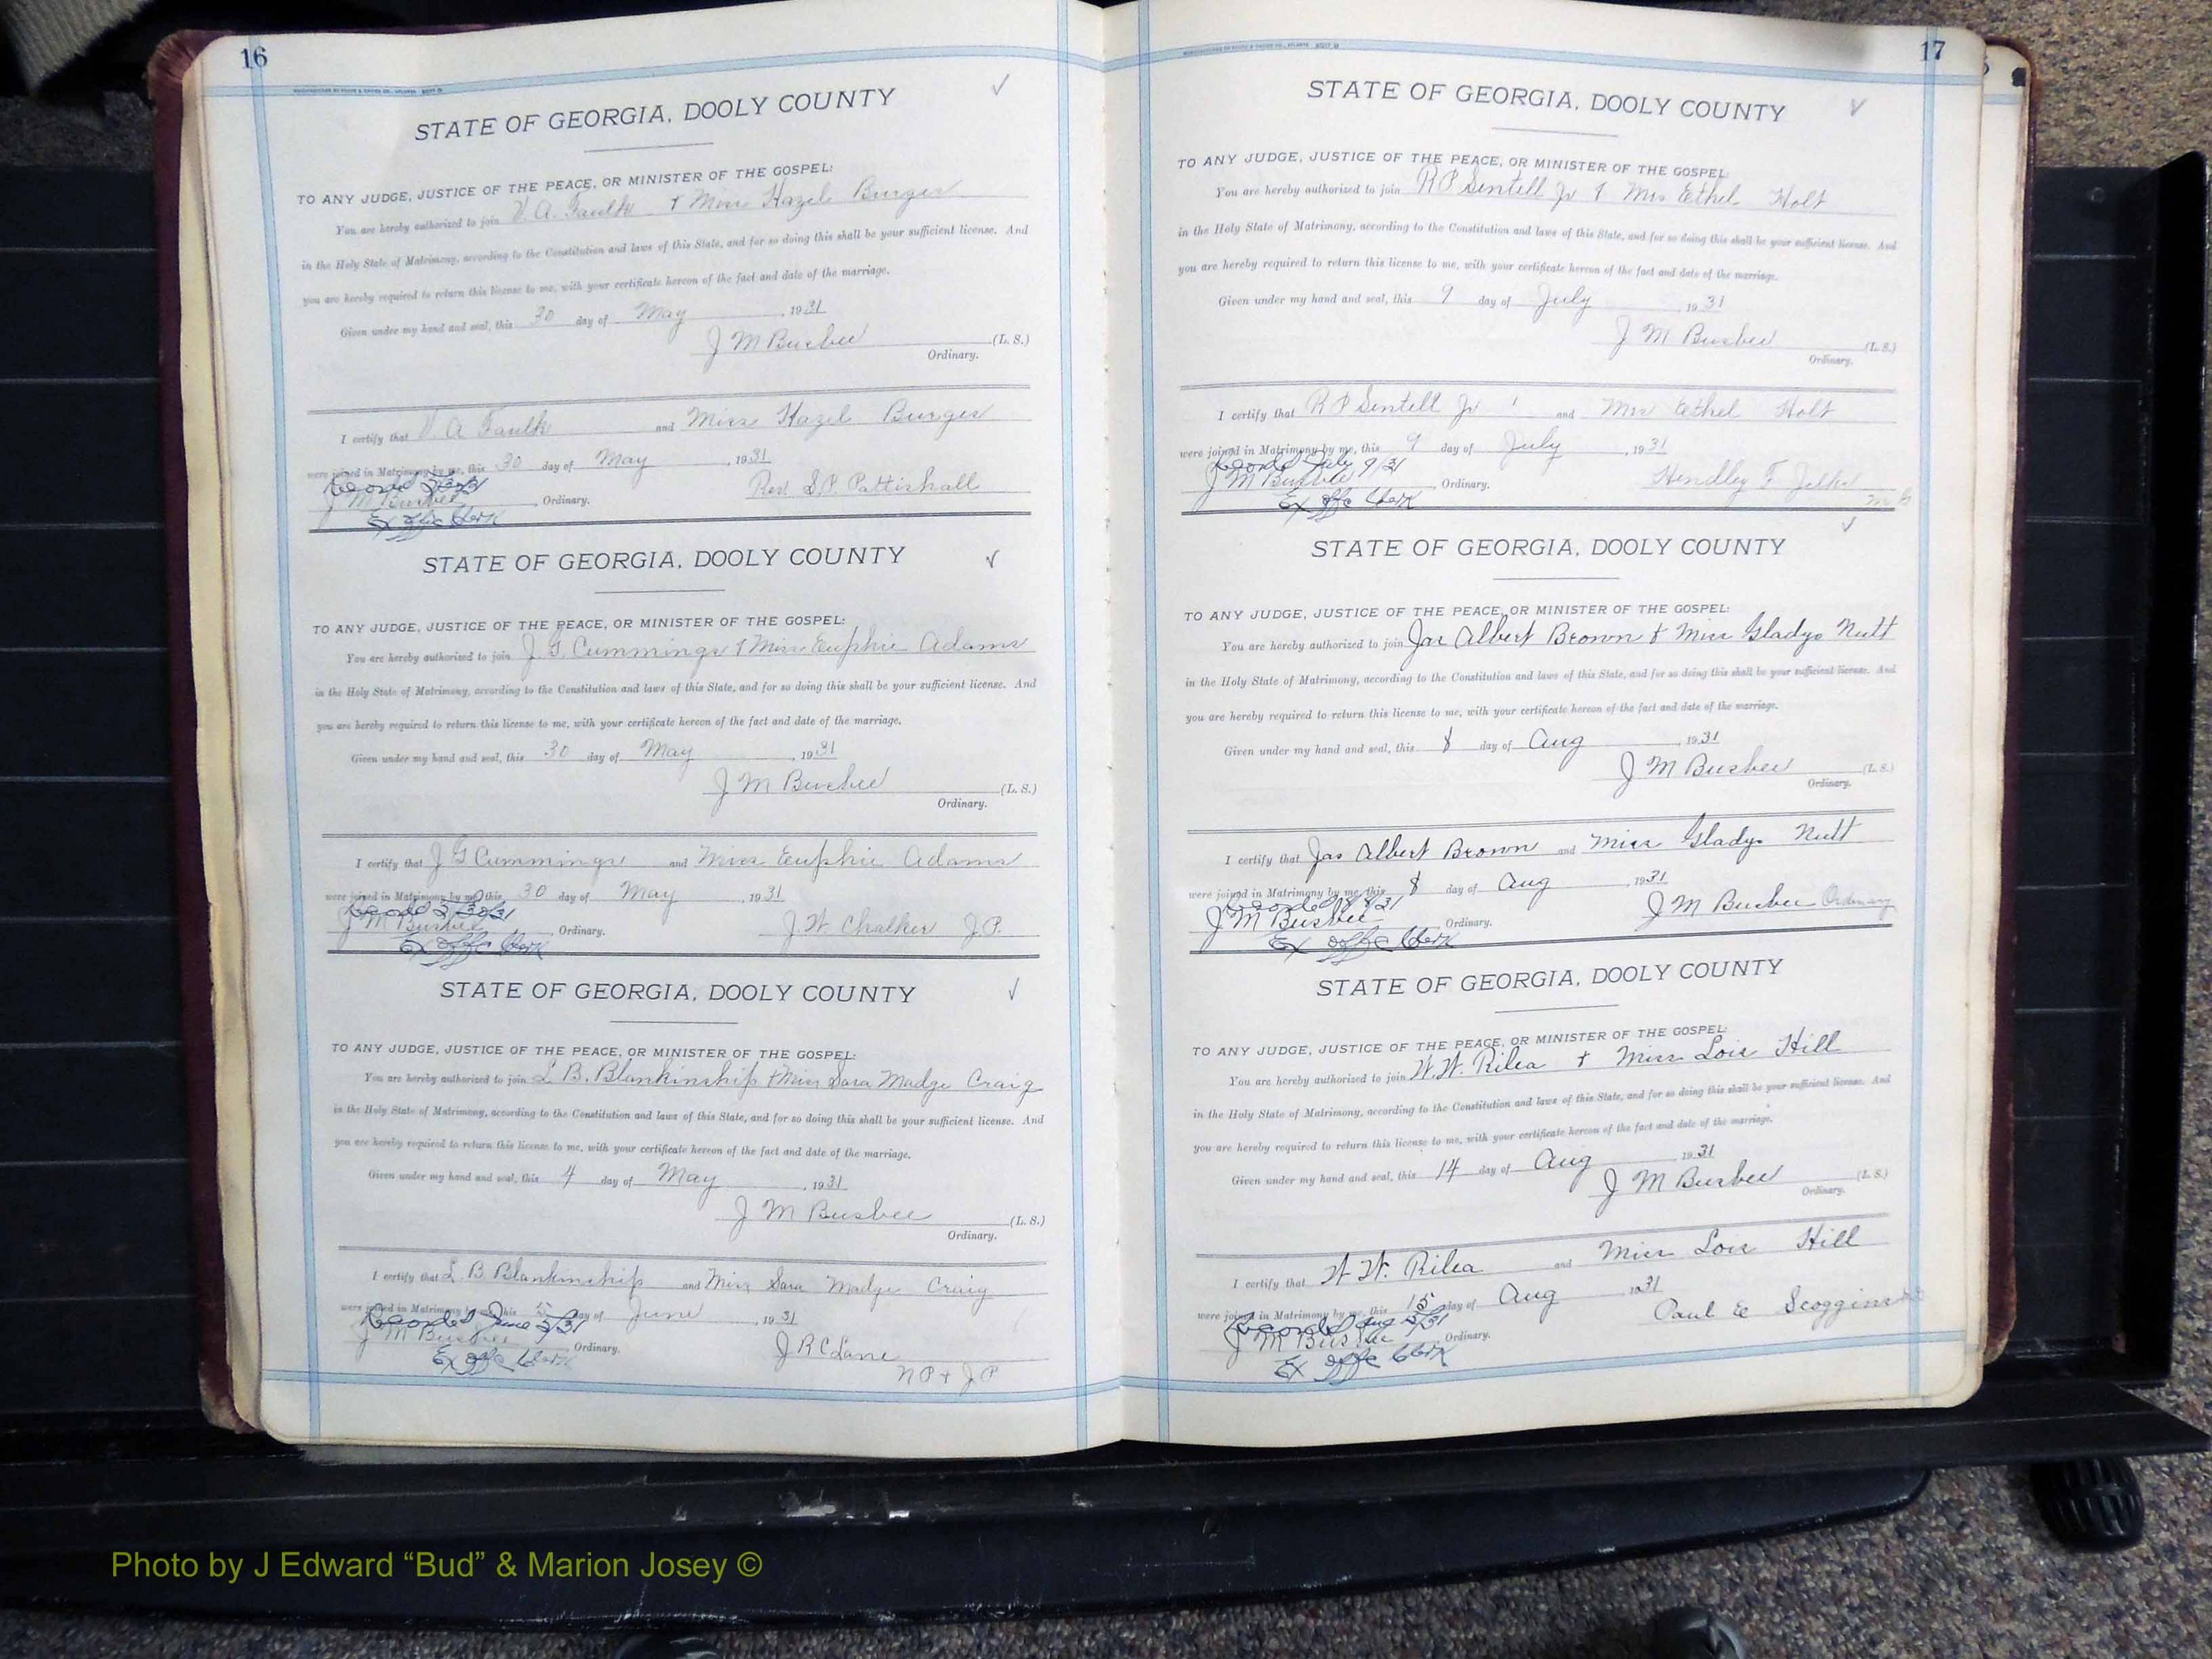 16
STATE OF GEORGIA, DOOLY COUNTY
TO ANY JUDGE, JUSTICE OF THE PEACE, OR MINISTER OF THE GOSPEL:
You are hereby authorized to join V. A. Faulk & Miss Hazel Burger
in the Holy State of Matrimony, according to the Constitution and laws of this State, and for so doing this shall be your sufficient license. And
you are hereby required to return this license to me, with your certificate hereon of the fact and date of the marriage.
Given under my hand and seal, this 30 day of May, 1931
J M Busbee (L. S.)
Ordinary.
I certify that V. A Faulk and Miss Hazel Burger
were joined in Matrimony by me, this 30 day of May, 1931
Recorded
J M Busbee, Ordinary. Rev. S.P. Pattishall
Ex offc Clerk
STATE OF GEORGIA, DOOLY COUNTY
TO ANY JUDGE, JUSTICE OF THE PEACE, OR MINISTER OF THE GOSPEL:
You are hereby authorized to join J. G. Cummings & Miss Euphie Adams
in the Holy State of Matrimony, according to the Constitution and laws of this State, and for so doing this shall be your sufficient license. And
you are hereby required to return this license to me, with your certificate hereon of the fact and date of the marriage.
Given under my hand and seal, this 30 day of May, 1931
J M Busbee (L. S.)
Ordinary.
I certify that J G Cummings and Miss Euphie Adams
were joined in Matrimony by me, this 30 day of May, 1931
Recorded
J M Busbee, Ordinary. J. W. Chalker J.P.
Ex offc Clerk
STATE OF GEORGIA, DOOLY COUNTY
TO ANY JUDGE, JUSTICE OF THE PEACE, OR MINISTER OF THE GOSPEL:
You are hereby authorized to join L B. Blankinship & Miss Sara Madge Craig
in the Holy State of Matrimony, according to the Constitution and laws of this State, and for so doing this shall be your sufficient license. And
you are hereby required to return this license to me, with your certificate hereon of the fact and date of the marriage.
Given under my hand and seal, this 4 day of May, 1931
J M Busbee (L. S.)
Ordinary.
I certify that L. B Blankinship and Miss Sara Madge Craig
were joined in Matrimony by me, this 5 day of June, 1931
Recorded June 5/31
J M Busbee Ordinary. J R C Lane
Ex offc Clerk N P & J P
17
STATE OF GEORGIA, DOOLY COUNTY
TO ANY JUDGE, JUSTICE OF THE PEACE, OR MINISTER OF THE GOSPEL:
You are hereby authorized to join R P Sentell Jr & Mrs Ethel Holt
in the Holy State of Matrimony, according to the Constitution and laws of this State, and for so doing this shall be your sufficient license. And
you are hereby required to return this license to me, with your certificate hereon of the fact and date of the marriage.
Given under my hand and seal, this 9 day of July, 1931
J M Busbee (L. S.)
Ordinary.
I certify that R P Sentell Jr and Mrs Ethel Holt
were joined in Matrimony by me, this 9 day of July, 1931
Recorded July 9/31
J M Busbee, Ordinary. Hendley F
Ex offc Clerk M G
STATE OF GEORGIA, DOOLY COUNTY
TO ANY JUDGE, JUSTICE OF THE PEACE, OR MINISTER OF THE GOSPEL:
You are hereby authorized to join Jas Albert Brown & Miss Gladys Nutt
in the Holy State of Matrimony, according to the Constitution and laws of this State, and for so doing this shall be your sufficient license. And
you are hereby required to return this license to me, with your certificate hereon of the fact and date of the marriage.
Given under my hand and seal, this 8 day of Aug, 1931
J M Busbee (L. S.)
Ordinary.
I certify that Jas Albert Brown and Miss Gladys Nutt
were joined in Matrimony by me, this 8 day of Aug, 1931
Recorded 8/8/31 J M Busbee Ordinary
J M Busbee, Ordinary.
Ex offc Clerk
STATE OF GEORGIA, DOOLY COUNTY
TO ANY JUDGE, JUSTICE OF THE PEACE, OR MINISTER OF THE GOSPEL:
You are hereby authorized to join W. W. Rilea & Miss Lois Hill
in the Holy State of Matrimony, according to the Constitution and laws of this State, and for so doing this shall be your sufficient license. And
you are hereby required to return this license to me, with your certificate hereon of the fact and date of the marriage.
Given under my hand and seal, this 14 day of Aug, 1931
J M Busbee (L. S.)
Ordinary.
I certify that W. W. Rilea and Miss Lois Hill
were joined in Matrimony by me, this 15 day of Aug 1931
Recorded Aug 15/31 Paul E Scoggins
J M Busbee, Ordinary.
Ex offc Clerk
Photo by J Edward “Bud” & Marion Josey ©